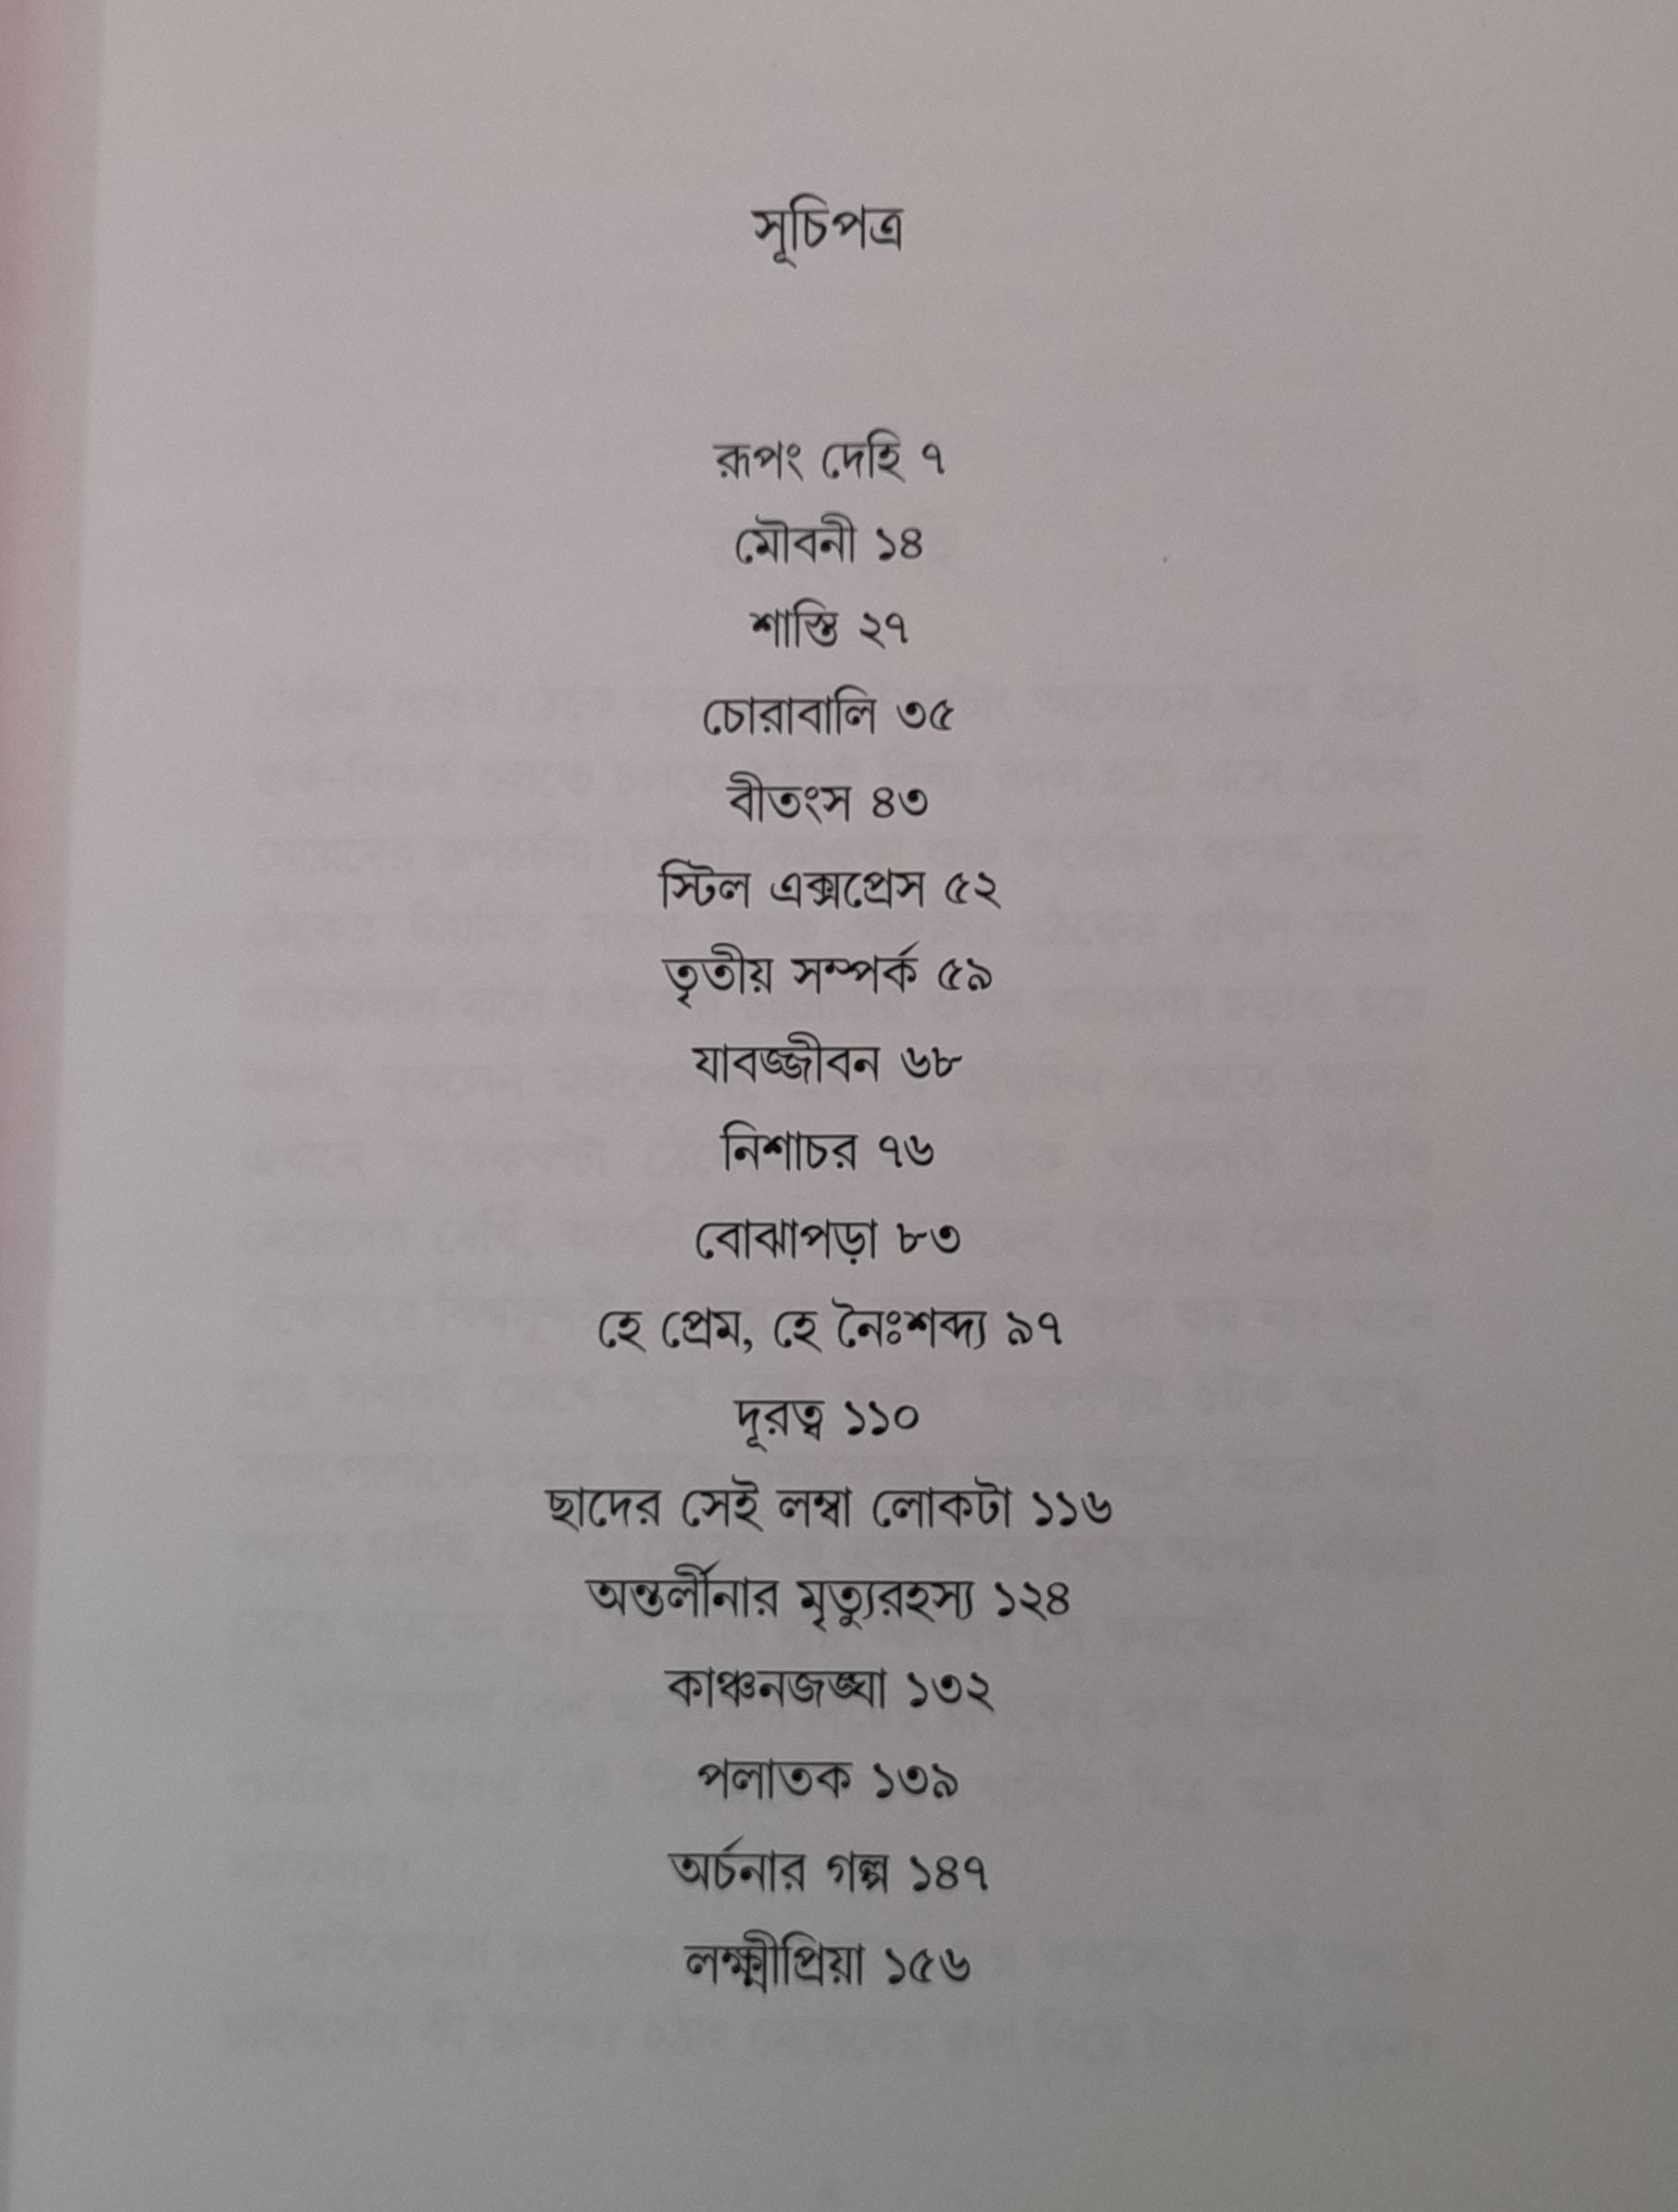 সূচিপত্র
রূপং দেহি ৭
মৌবনী ১৪
শাস্তি ২৭
চোরাবালি ৩৫
বীতংস ৪৩
স্টিল এক্সপ্রেস ৫২
তৃতীয় সম্পর্ক ৫৯
যাবজ্জীবন ৬৮
নিশাচর ৭৬
বোঝাপড়া ৮৩
হে প্রেম, হে নৈঃশব্দ্য ৯৭
দূরত্ব ১১০
ছাদের সেই লম্বা লোকটা ১১৬
অন্তর্লীনার মৃত্যুরহস্য ১২৪
কাঞ্চনজঙ্ঘা ১৩২
পলাতক ১৩৯
অর্চনার গল্প ১৪৭
লক্ষ্মীপ্রিয়া ১৫৬